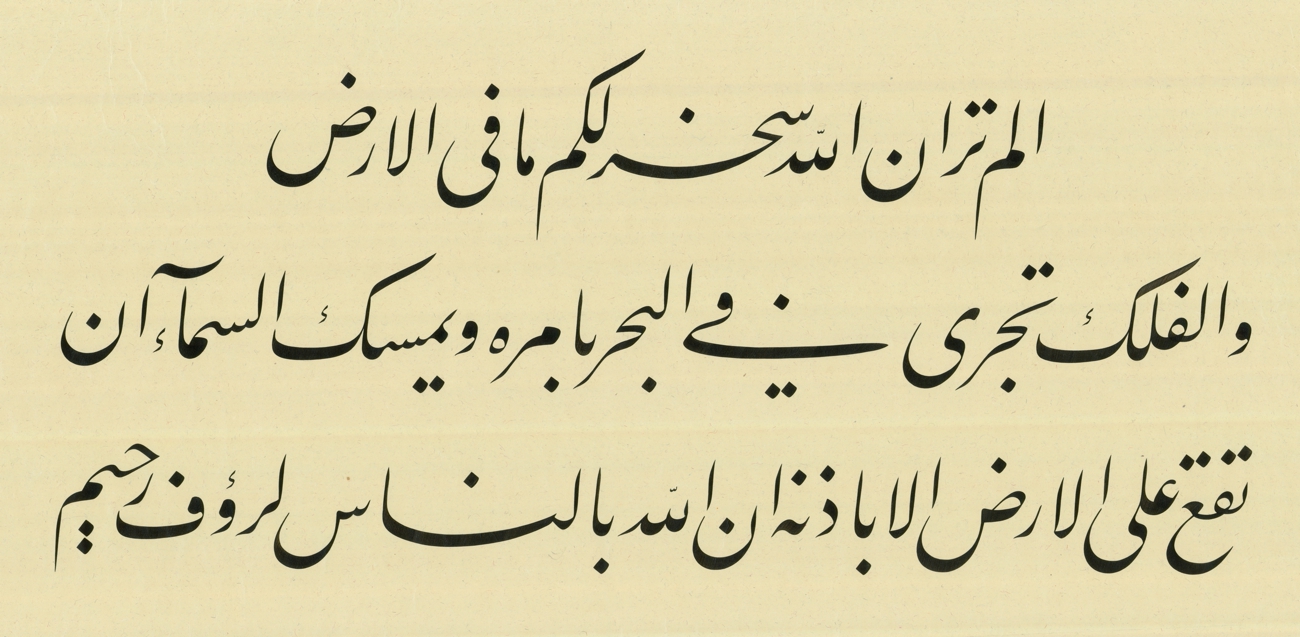 الم تر ان الله سخر لكم ما فى الارض
والفلك تجرى في البحر بامره ويمسك السمآء ان
تقع على الارض الا باذنه ان الله بالناس لرؤف رحيم